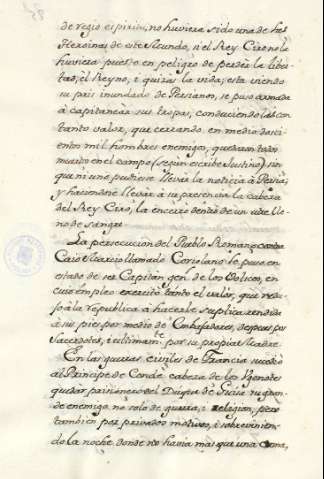 de regio espiritu, no huviera sido una de las
Heroinas de este Mundo, si el Rey Ciro no la
huviera puesto en peligro de perder la liber-
tad, el Reyno, i quizas la vida; esta viendo
su pais inundado de Persianos, se puso armada
à capitanear sus tropas, conduciendolas con
tanto valor, que cerrando en medio docien-
tos mil hombres enemigos, quedaron todos
muertos en el campo (segun escribe Justino) sin
que ni uno pudiese llevar la noticia à Persia;
y haciendose llevar à su presencia la cabeza
del Rey Ciro, la encerró dentro de un odre lle-
no de sangre
La persecucion del Pueblo Romano contra
Caio Marcio llamado Coriolano le puso en
estado de ser Capitan gen.l de los Volscos, en
cuio empleo exercitò tanto el valor, que redu-
jo à la republica à hacerle suplica rendida
à sus pies por medio de Embajadores, despues por
Sacerdotes, i ultimam.te por su propia Madre.
En las guerras civiles de Francia sucediò
al Principe de Condè cabeza de los Ugonotes
quedar prisionero del Duque de Guisa su gran-
de enemigo no solo de guerra, i religion, pero
tambien por privados motivos, i sobrevinien-
do la noche donde no havia mas que una cama,